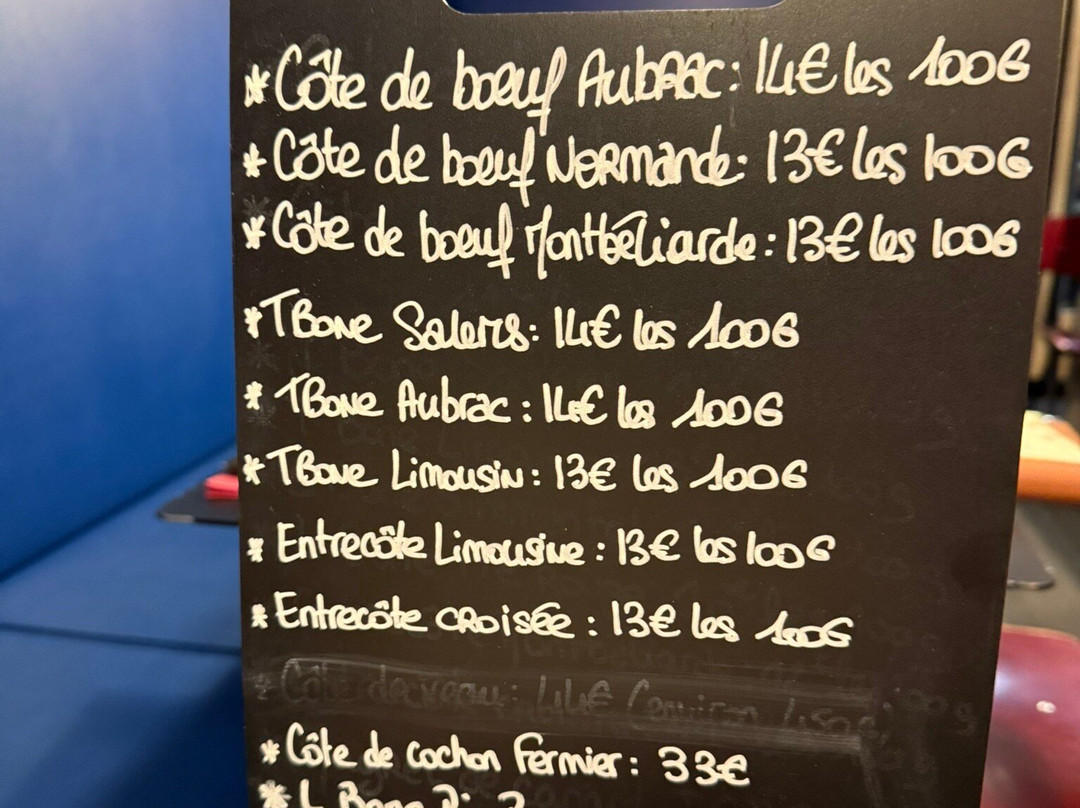 * Côte de boeuf Aubrac: 14€ les 100G
* Côte de boeuf Normande: 13€ les 100G
* Côte de boeuf Montbéliarde: 13€ les 100G
* TBone Salers: 14€ les 100G
* TBone Aubrac: 14€ les 100G
* TBone Limousin: 13€ les 100G
* Entrecôte Limousine: 13€ les 100G
* Entrecôte CROISÉE: 13€ les 100G
Côte de veau: 44€ (environ
* Côte de cochon Fermier: 33€